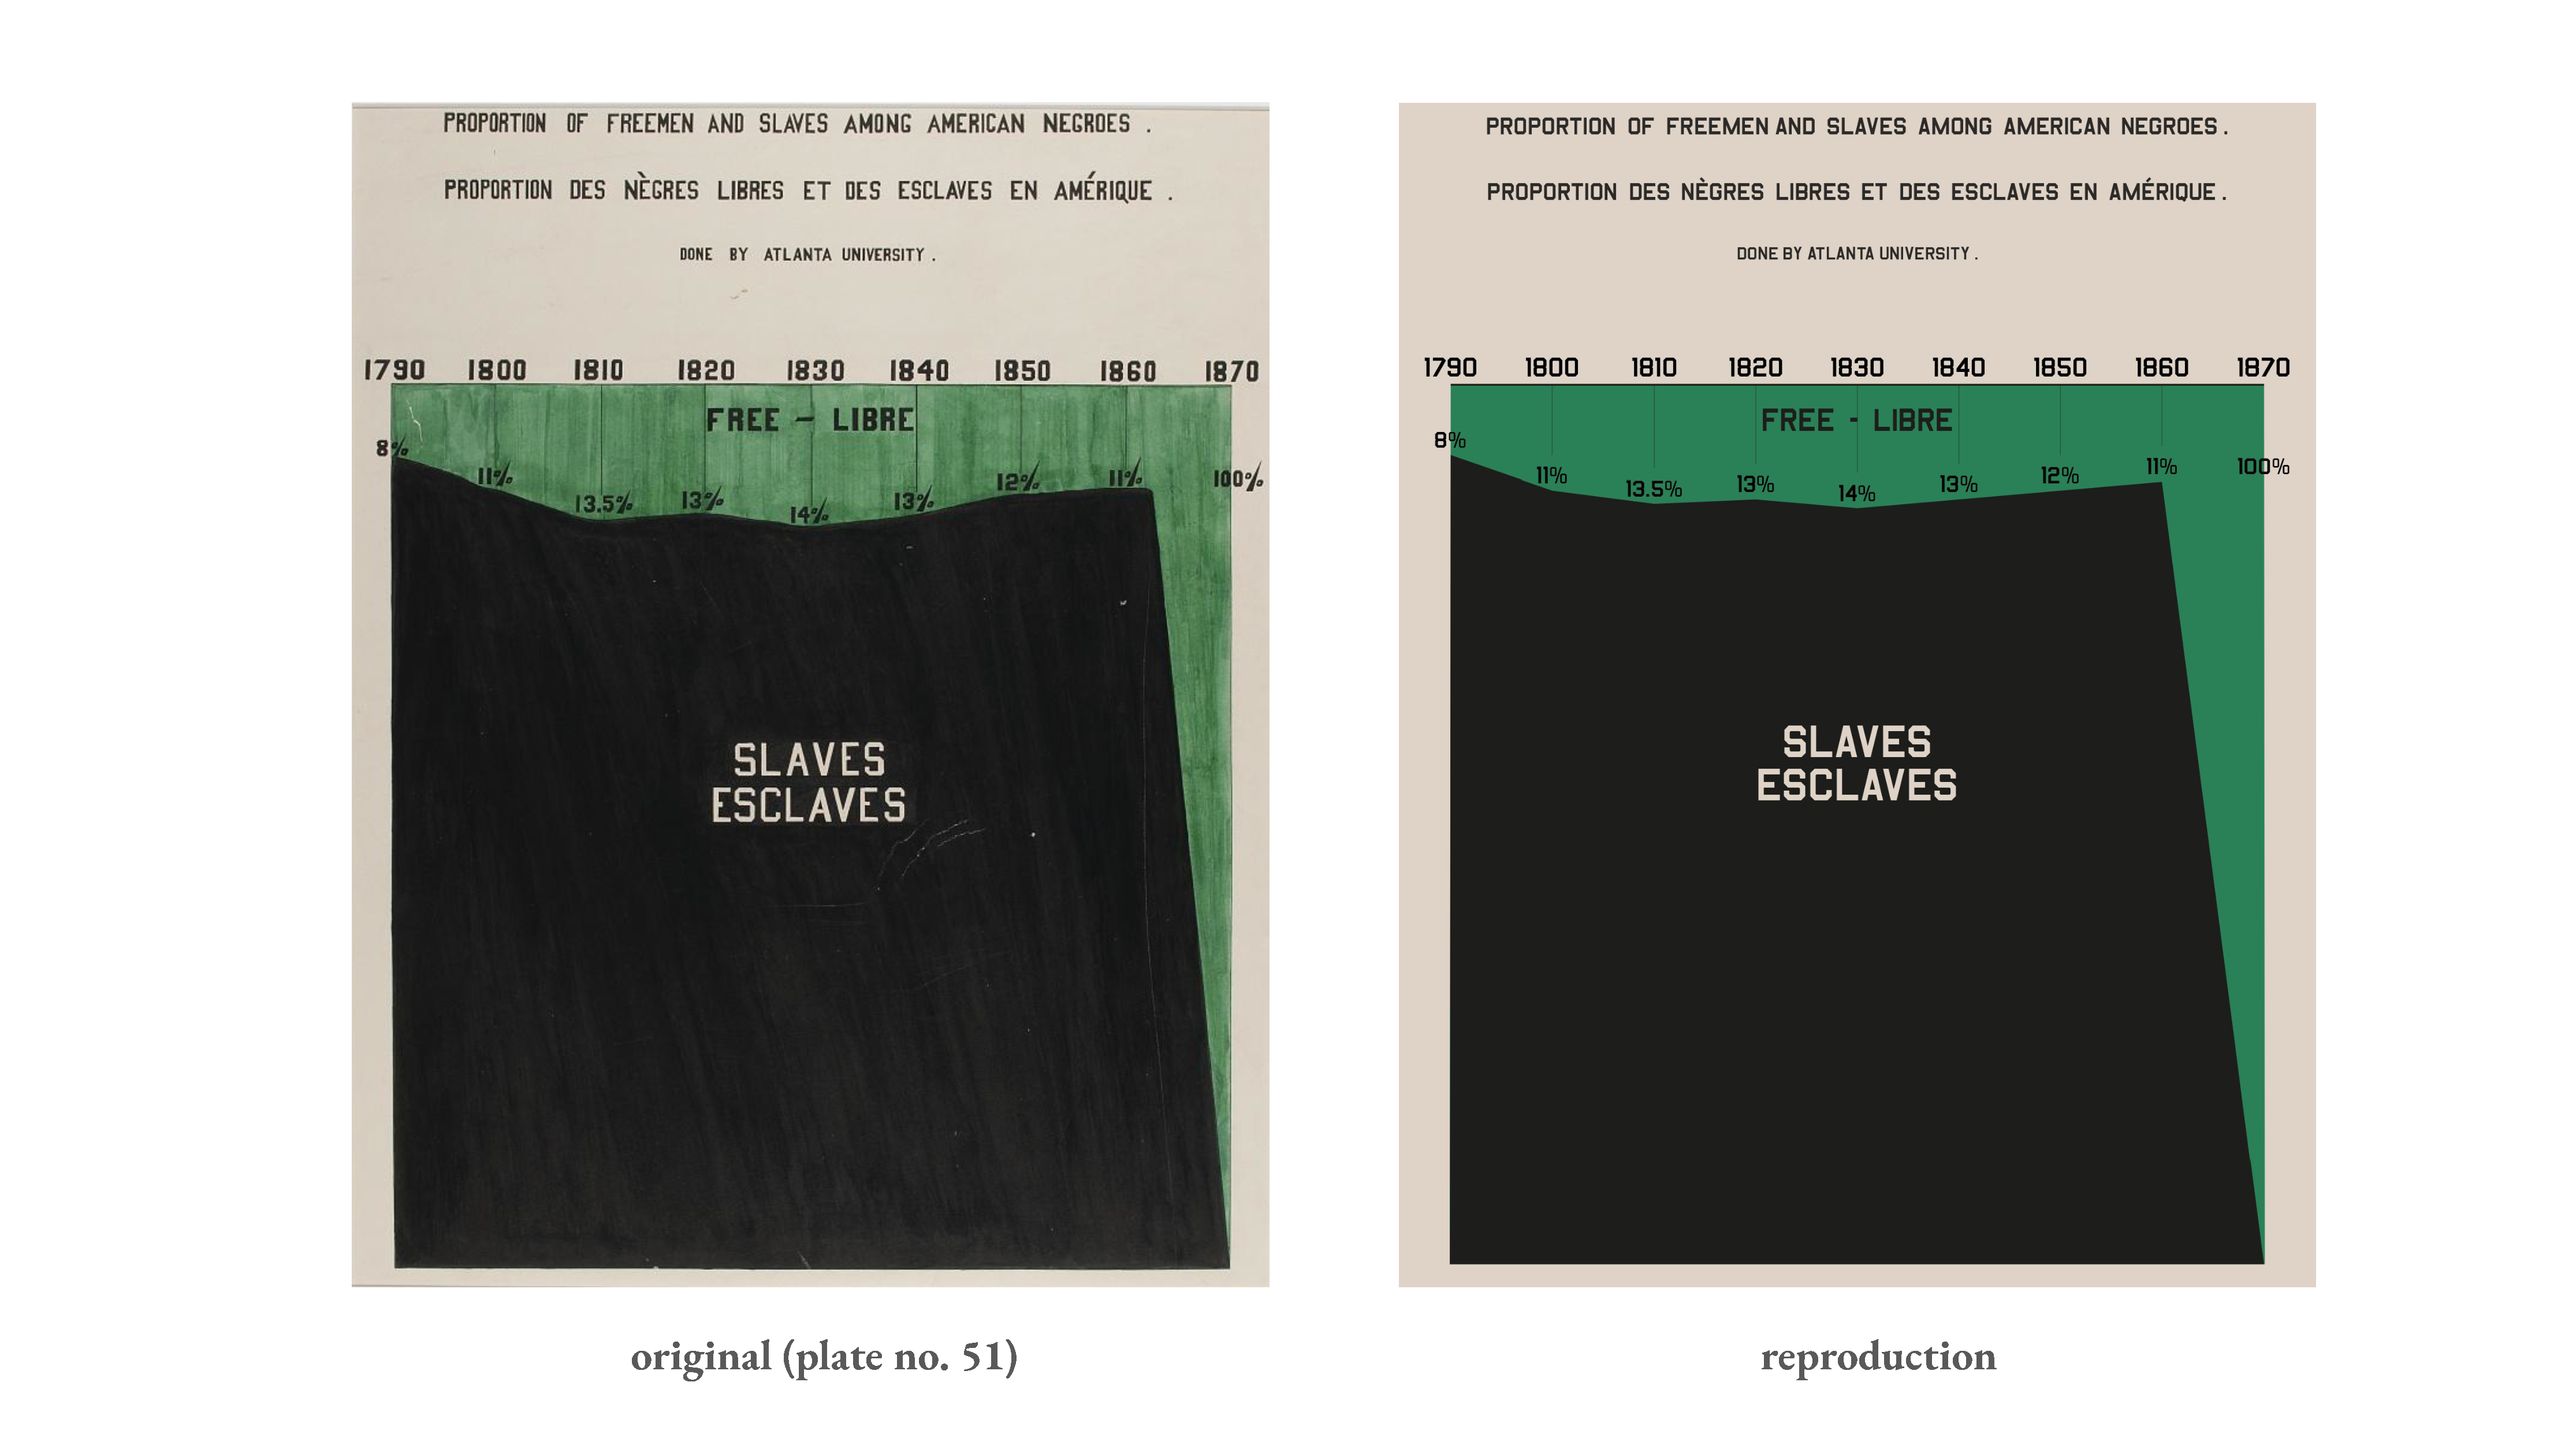 PROPORTION OF FREEMEN AND SLAVES AMONG AMERICAN NEGROES .
PROPORTION DES NÈGRES LIBRES ET DES ESCLAVES EN AMÉRIQUE .
DONE BY ATLANTA UNIVERSITY .
1790 1800 1810 1820 1830 1840 1850 1860 1870
FREE - LIBRE
8% 11% 13.5% 13% 14% 13% 12% 11% 100%
SLAVES
ESCLAVES
original (plate no. 51)
PROPORTION OF FREEMEN AND SLAVES AMONG AMERICAN NEGROES .
PROPORTION DES NÈGRES LIBRES ET DES ESCLAVES EN AMÉRIQUE .
DONE BY ATLANTA UNIVERSITY .
1790 1800 1810 1820 1830 1840 1850 1860 1870
FREE - LIBRE
8% 11% 13.5% 13% 14% 13% 12% 11% 100%
SLAVES
ESCLAVES
reproduction